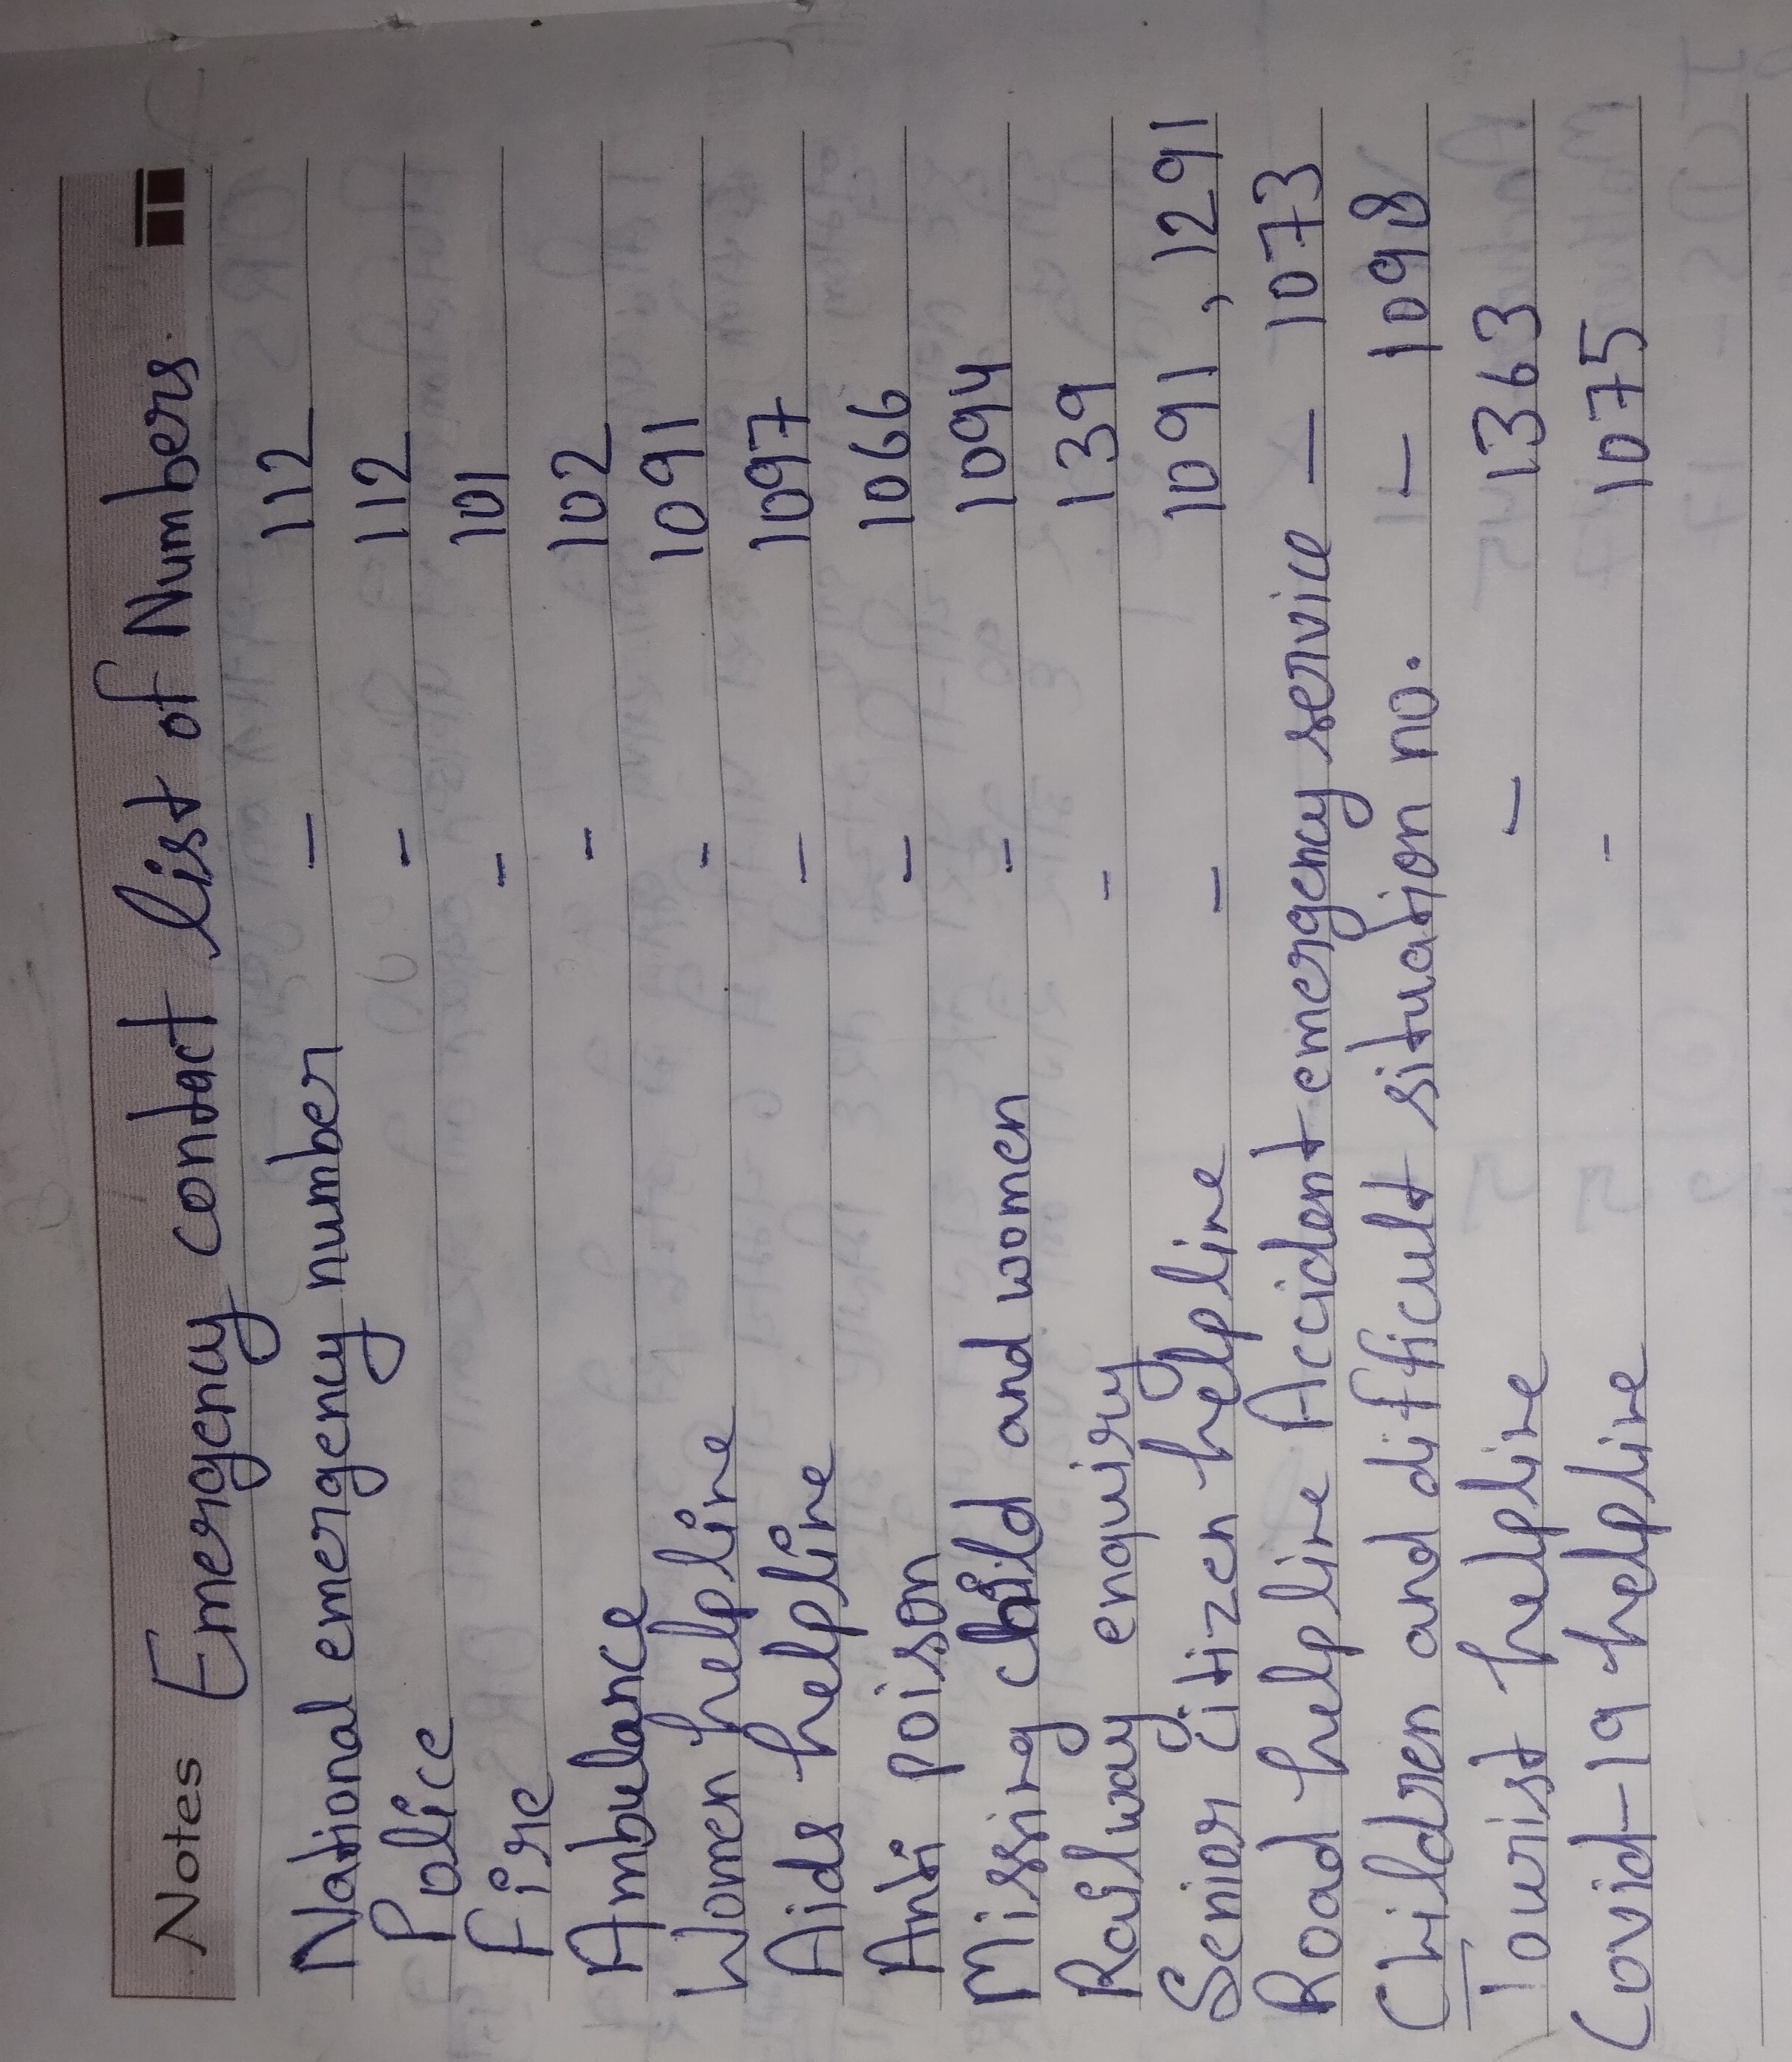 Notes Emergency contact list of Numbers.
National emergency number - 112
Police - 112
Fire - 101
Ambulance - 102
Women helpline - 1091
Aids helpline - 1097
Anti poison - 1066
Missing child and women - 1094
Railway enquiry - 139
Senior citizen helpline - 1091, 1291
Road helpline Accident emergency service - 1073
Children and difficult situation no. - 1098
Tourist helpline - 1363
Covid-19 helpline - 1075